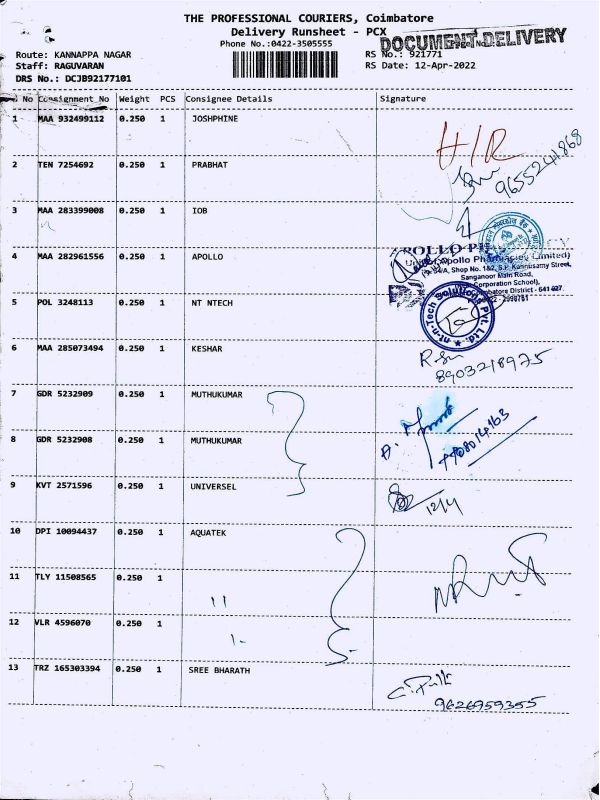 THE PROFESSIONAL COURIERS, Coimbatore
Delivery Runsheet - PCX
DOCUMENT DELIVERY
Phone No.:0422-3505555
Route: KANNAPPA NAGAR
RS No.: 921771
Staff: RAGUVARAN
RS Date: 12-Apr-2022
DRS No.: DCJB92177101
No Consignment No Weight PCS Consignee Details Signature
1 MAA 932499112 0.250 1 JOSHPHINE
H/R
2 TEN 7254692 0.250 1 PRABHAT
9655241868
3 MAA 283399008 0.250 1 IOB
4 MAA 282961556 0.250 1 APOLLO
APOLLO
Apollo Pharmacies Limited)
Shop No. 1&2, S.P. Kannusamy Street,
Sanganoor Main Road,
Corporation School),
District - 641 027.
5 POL 3248113 0.250 1 NT NTECH
nt-n-Tech Solutions Pvt. Ltd.
6 MAA 285073494 0.250 1 KESHAR
8903218975
7 GDR 5232909 0.250 1 MUTHUKUMAR
8 GDR 5232908 0.250 1 MUTHUKUMAR
9 KVT 2571596 0.250 1 UNIVERSEL
12/4
10 DPI 10094437 0.250 1 AQUATEK
11 TLY 11508565 0.250 1
12 VLR 4596070 0.250 1
13 TRZ 165303394 0.250 1 SREE BHARATH
9626959355